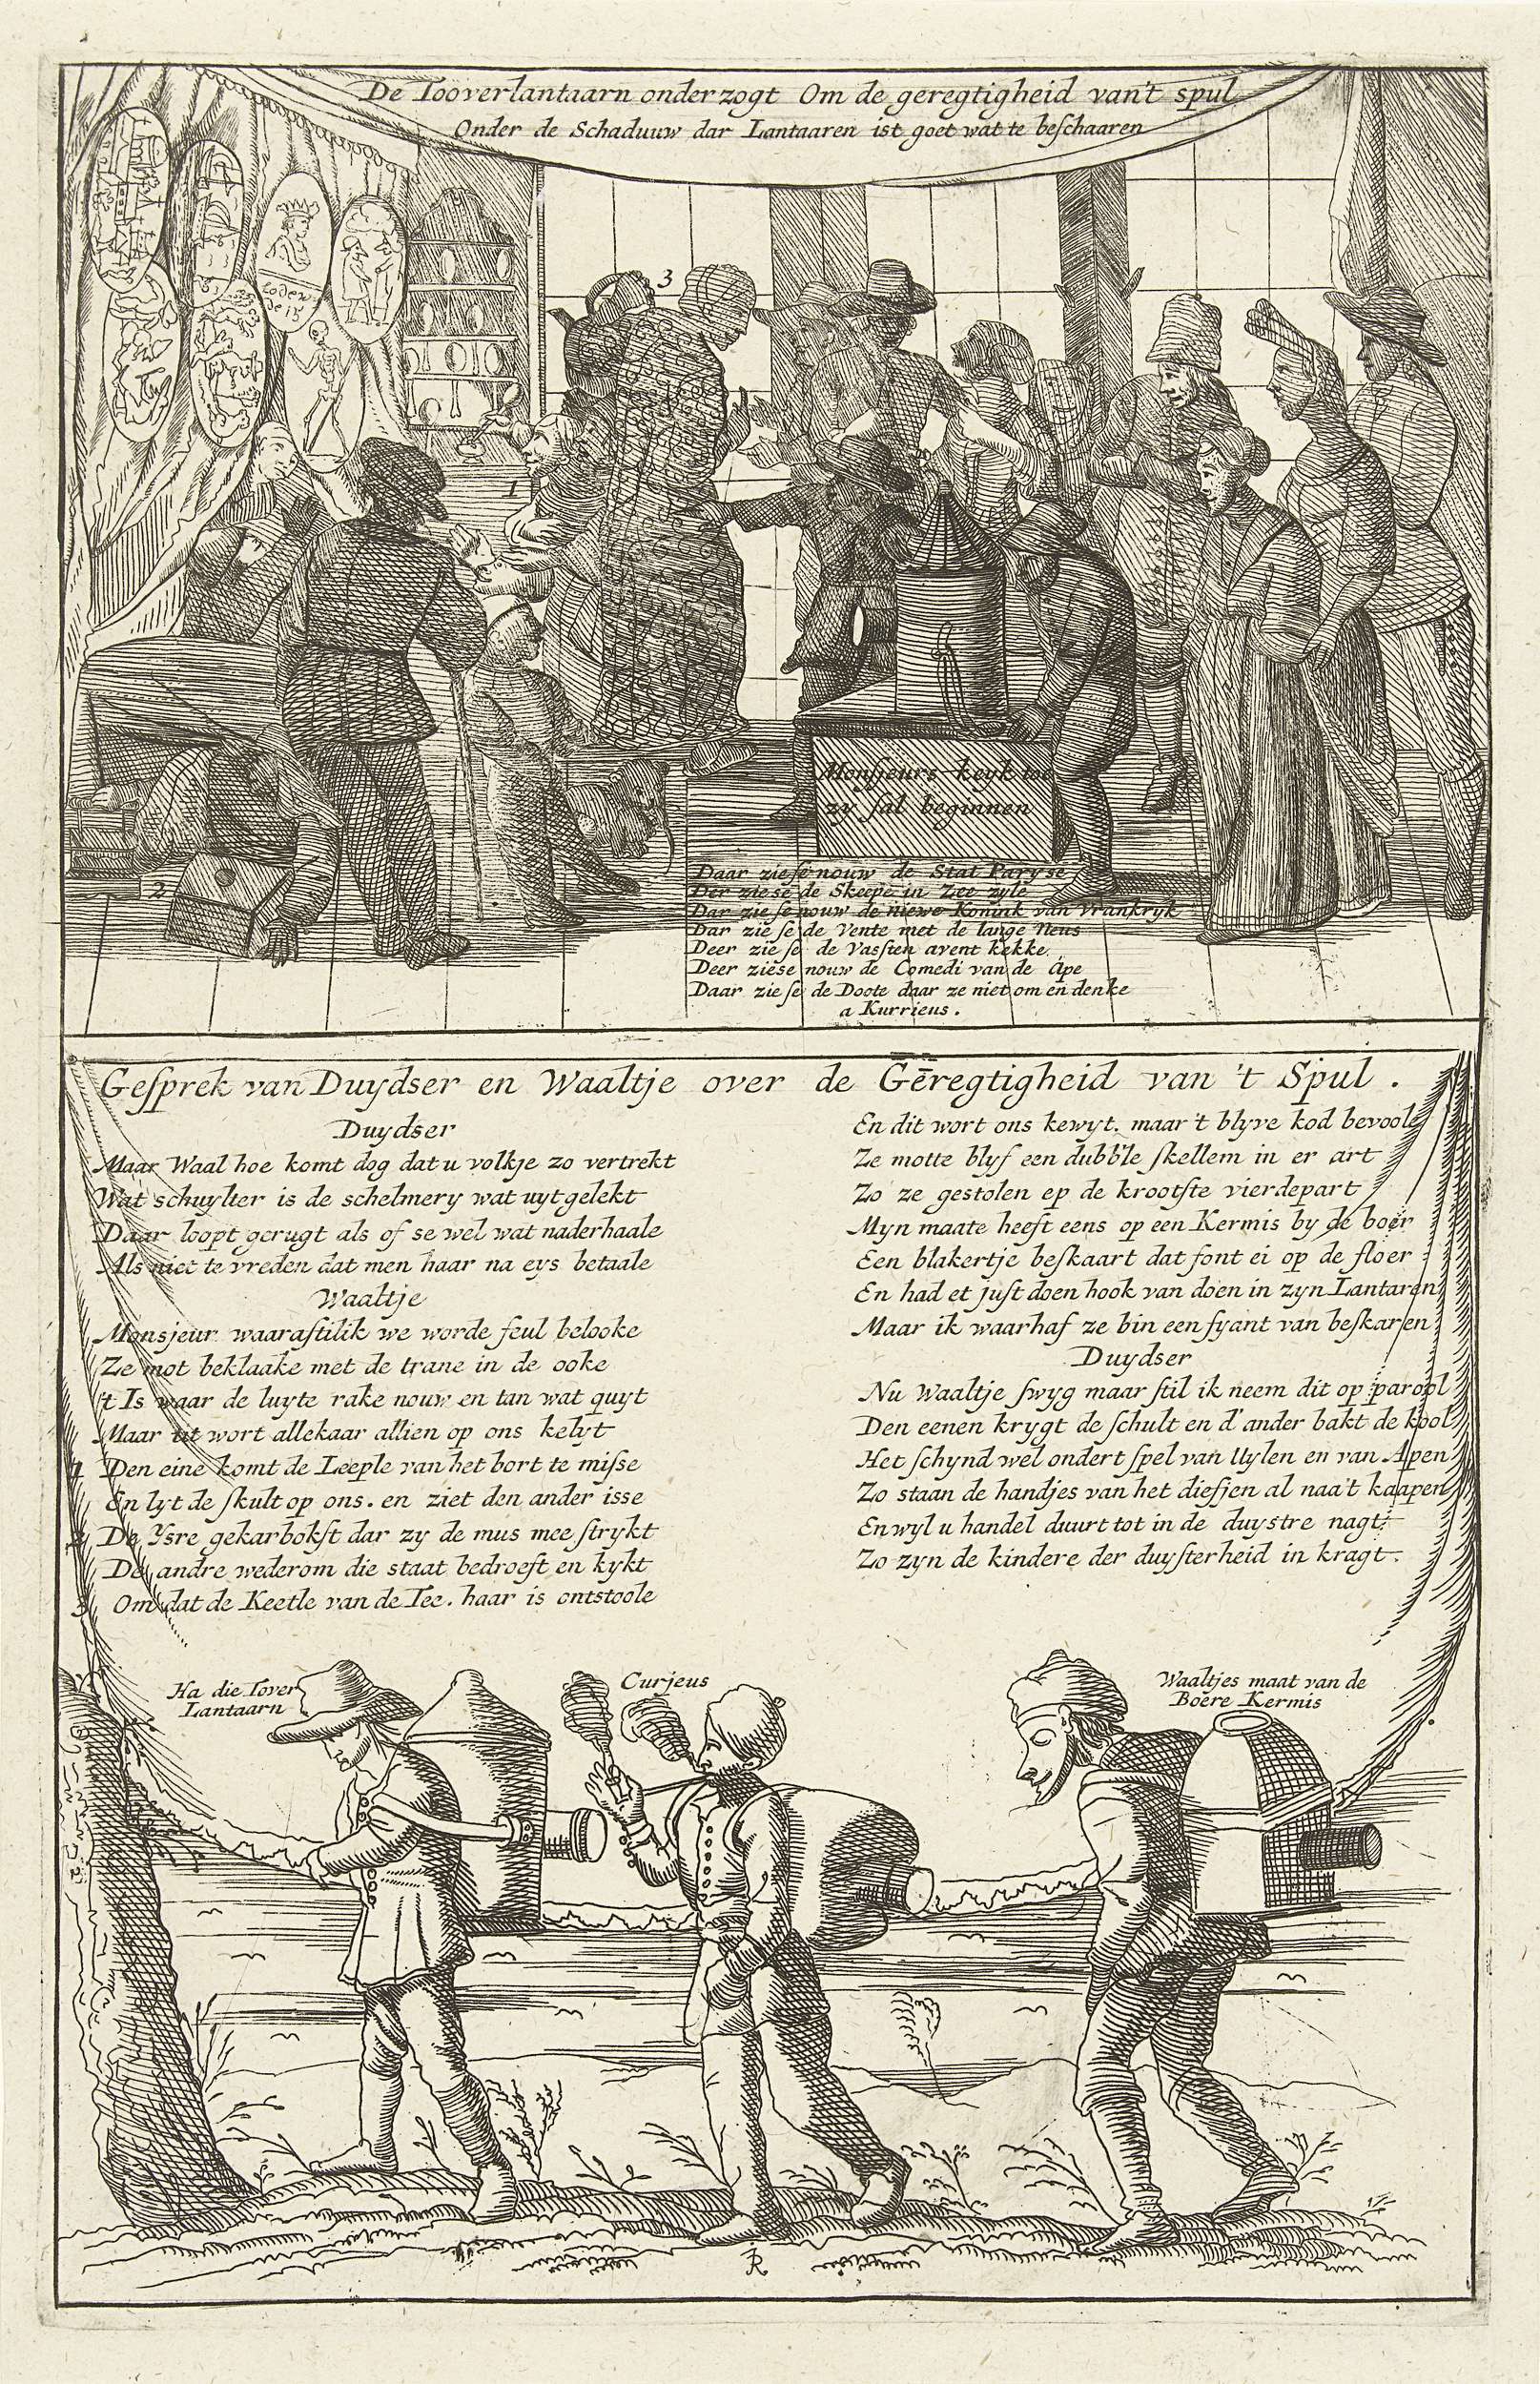 De Tooverlantaarn onderzogt Om de geregtigheid van't spul
Onder de Schaduuw dar Lantaaren ist goet wat te beschaaren
zoden
de 15
3
1
2
Monsjeurs keyk toe
zy sal beginnen
Daar zie se nouw de Stat Paryse
Der zie se de Skeepe in Zee zyle
Dar zie se nouw de niewe Konink van Vrankryk
Dar zie se de Vente met de lange Neus
Deer zie se de Vastien avent kekke.
Deer ziese nouw de Comedi van de Ape
Daar zie se de Doote daar ze niet om en denke
a Kurrieus.
Gesprek van Duydser en Waaltje over de Geregtigheid van 't Spul.
Duydser
Maar Waal hoe komt dog dat u volkje zo vertrekt
Wat schuylter is de schelmery wat uytgelekt
Daar loopt gerugt als of se wel wat naderhaale
Als niet te vreden dat men haar na eys betaale
Waaltje
Monsjeur waarastilik we worde feul belooke
Ze mot beklaake met de trane in de ooke
't Is waar de luyte rake nouw en tan wat quyt
Maar tit wort allekaar allien op ons kelyt
1 Den eine komt de Leeple van het bort te misse
En lyt de skult op ons. en ziet den ander isse
2 De Ysre gekarbokst dar zy de mus mee strykt
De andre wederom die staat bedroeft en kykt
3 Om dat de Keetle van de Tee. haar is ontstoole
En dit wort ons kewyt. maar 't blyve kod bevoole
Ze motte blyf een dubb'le skellem in er art
Zo ze gestolen ep de krootste vierdepart
Myn maate heeft eens op een Kermis by de boer
Een blakertje beskaart dat font ei op de floer
En had et just doen hook van doen in zyn Lantaren
Maar ik waarhaf ze bin een fyant van beskaren
Duydser
Nu Waaltje swyg maar stil ik neem dit op parool
Den eenen krygt de schult en d'ander bakt de kool
Het schynd wel ondert spel van Uylen en van Apen
Zo staan de handjes van het diefjen al naa't kaapen
En wyl u handel duurt tot in de duystre nagt
Zo zyn de kindere der duysterheid in kragt.
Ha die Tover
Lantaarn
Curjeus
Waaltjes maat van de
Boere Kermis